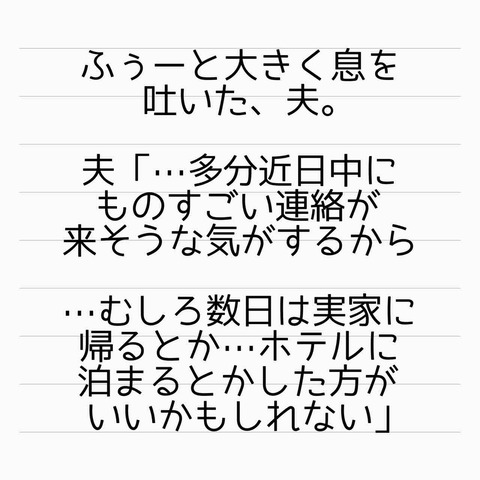 ふぅーと大きく息を
吐いた、夫。
夫「…多分近日中に
ものすごい連絡が
来そうな気がするから
…むしろ数日は実家に
帰るとか…ホテルに
泊まるとかした方が
いいかもしれない」